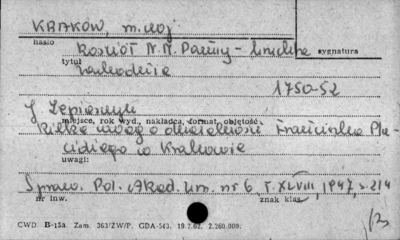 KRAKÓW, m. woj
hasło
Kościół N. M. Panny - śnieżna sygnatura
tytuł
1750-52
J. Lepiarczyk
miejsce, rok wyd., nakładca, format, objętość
Kilka uwag o działalności Franciszka Pla-
cidiego w Krakowie
uwagi:
Spraw. Pol. Akad. Um. nr 6, T. XLVIII, 1947, s. 214
nr inw. znak klas.
CWD. B-15a. Zam. 363/ZW/P. GDA-543. 19.7.62. 2.260.000.